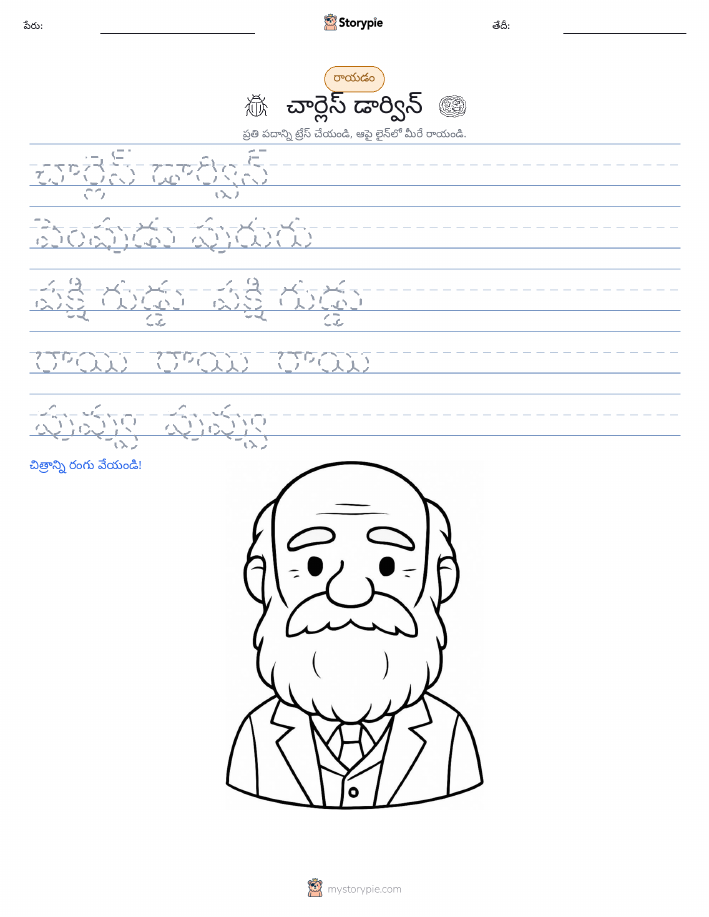 పేరు:
Storypie
తేదీ:
రాయడం
చార్లెస్ డార్విన్
ప్రతి పదాన్ని ట్రేస్ చేయండి, ఆపై లైన్‌లో మీరే రాయండి.
చార్లెస్ డార్విన్
పెంపుడు పురుగు
పక్షి గుడ్డు పక్షి గుడ్డు
రాయి రాయి రాయి
పువ్వు పువ్వు
చిత్రాన్ని రంగు వేయండి!
mystorypie.com